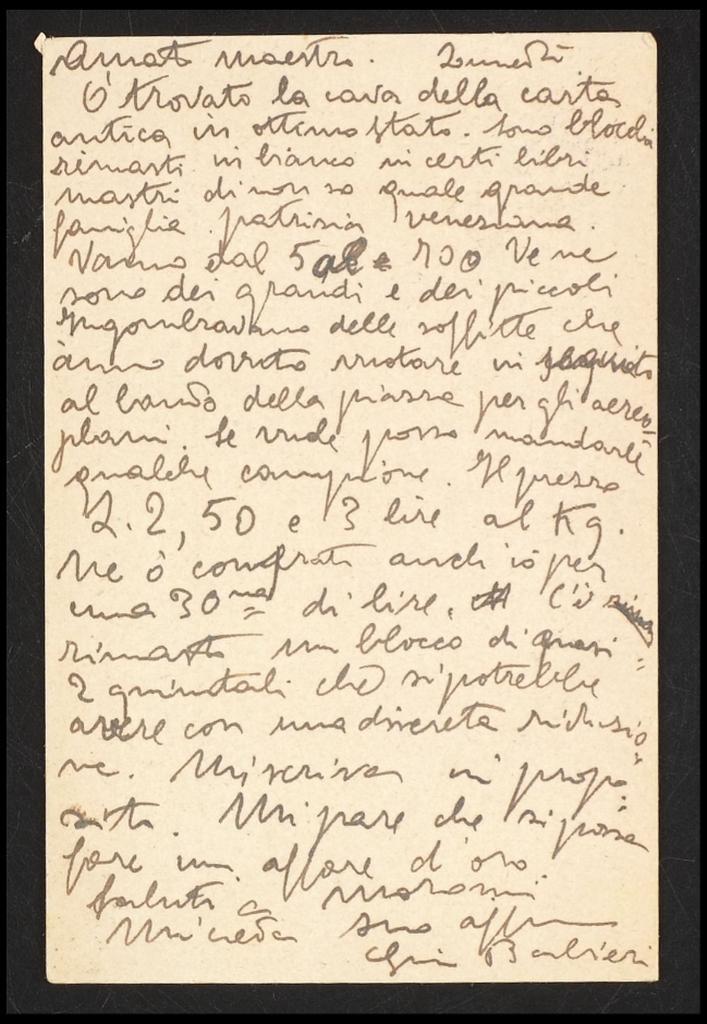 Amato maestro. Lunedì
Ò trovato la cava della carta
antica in ottimo stato. Sono blocchi
rimasti in bianco in certi libri
mastri di non so quale grande
famiglia patrizia veneziana.
Vanno dal 5 al 700 Ve ne
sono dei grandi e dei piccoli
Ingombravano delle soffitte che
ànno dovuto vuotare in seguito
al bando della piazza per gli aereo=
plani. Se vuole posso mandarle
qualche campione. Il prezzo
L. 2,50 e 3 lire al Kg.
Ne ò comprata anch'io per
una 30na di lire. C'è
rimasto un blocco di quasi
2 quintali che si potrebbe
avere con una discreta riduzio=
ne. Mi scriva in propo=
sito. Mi pare che si possa
fare un affare d'oro.
Saluti a Marassi
Mi creda suo aff
Gin Barbieri